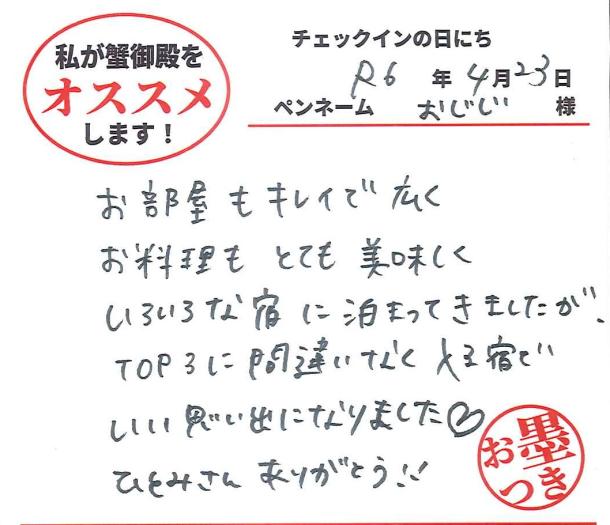 私が蟹御殿を
オススメ
します！
チェックインの日にち
R6 年 4月23日
ペンネーム おじじ 様
お部屋もキレイで広く
お料理もとても美味しく
いろいろな宿に泊まってきましたが、
TOP3に間違いなく入る宿で
いい思い出になりました♡
ひとみさんありがとう!!
お墨つき